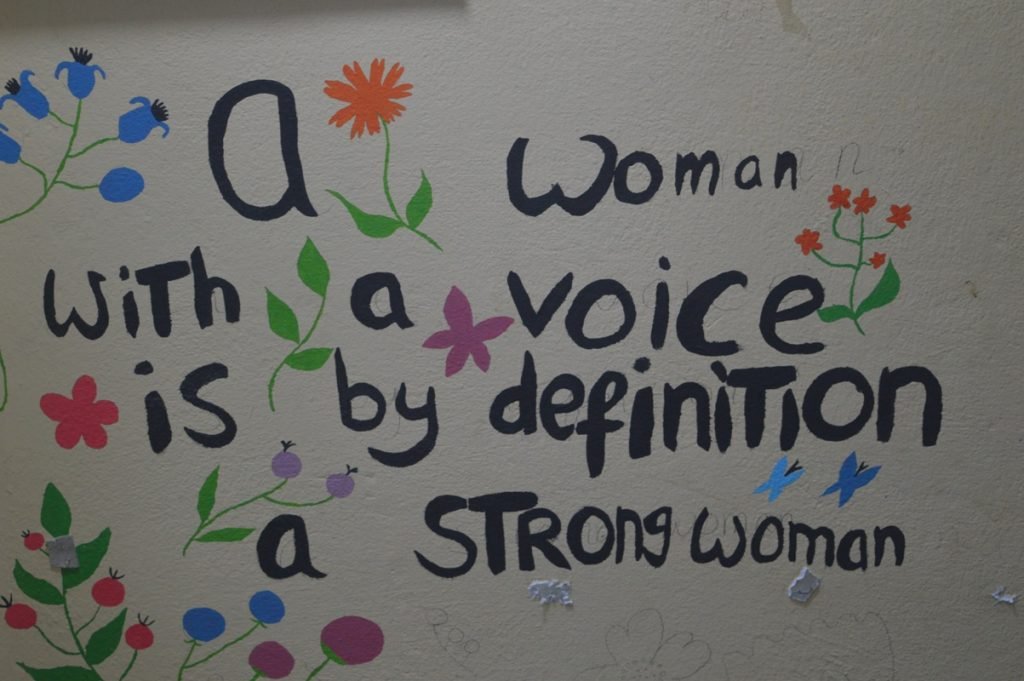 A woman
with a voice
is by definition
a STRong woman